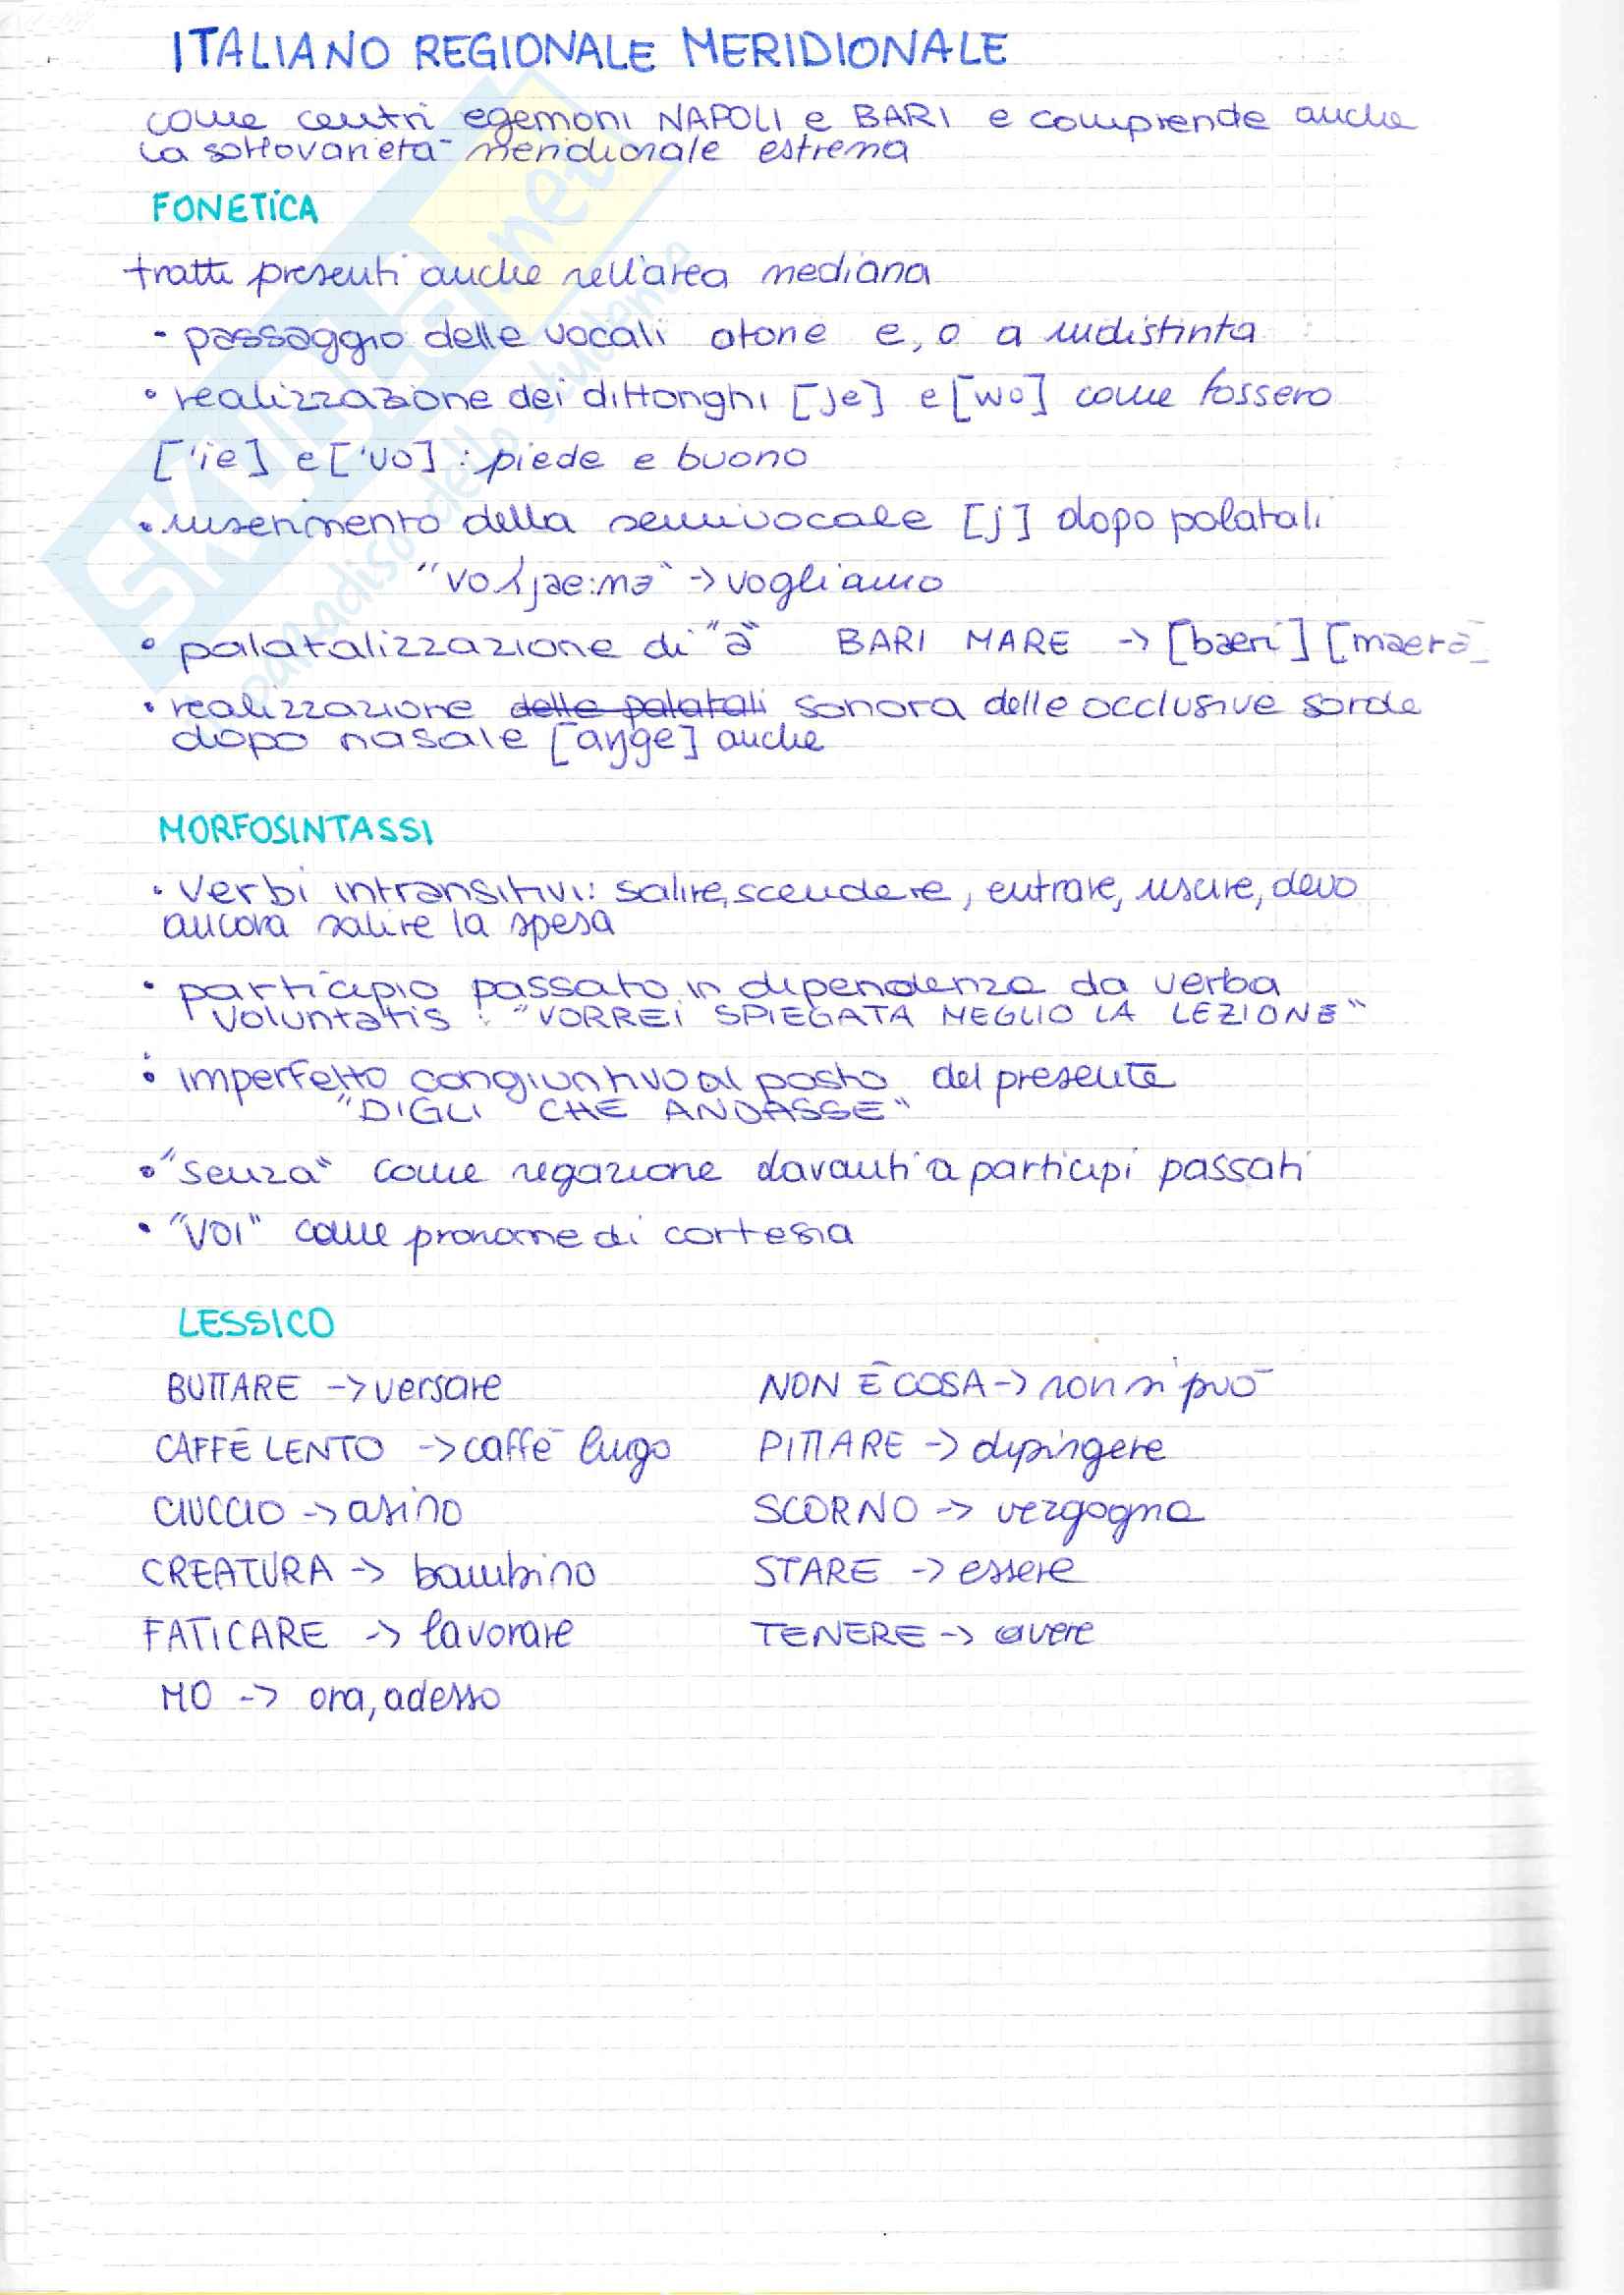 ITALIANO REGIONALE MERIDIONALE
come centri egemoni NAPOLI e BARI e comprende anche
la sottovarietà meridionale estrema
FONETICA
tratti presenti anche nell'area mediana
- passaggio delle vocali atone e, o a indistinta
• realizzazione dei dittonghi [je] e [wo] come fossero
['ie] e ['uo] : piede e buono
• inserimento della semivocale [j] dopo palatali
"voʎjae:mə" -> vogliamo
• palatalizzazione di "a" BARI MARE -> [bæri] [mæra
• realizzazione delle palatali sonora delle occlusive sorde
dopo nasale [aŋge] anche
MORFOSINTASSI
• Verbi intransitivi: salire, scendere, entrare, uscire, devo
ancora salire la spesa
• participio passato in dipendenza da verba
voluntatis : "VORREI SPIEGATA MEGLIO LA LEZIONE"
• imperfetto congiuntivo al posto del presente
"DIGLI CHE ANDASSE"
• "senza" come negazione davanti a participi passati
• "VOI" come pronome di cortesia
LESSICO
BUTTARE -> versare
CAFFÈ LENTO -> caffè lungo
CIUCCIO -> asino
CREATURA -> bambino
FATICARE -> lavorare
MO -> ora, adesso
NON È COSA -> non si può
PITTARE -> dipingere
SCORNO -> vergogna
STARE -> essere
TENERE -> avere
skuola.net
paradiso dello studente